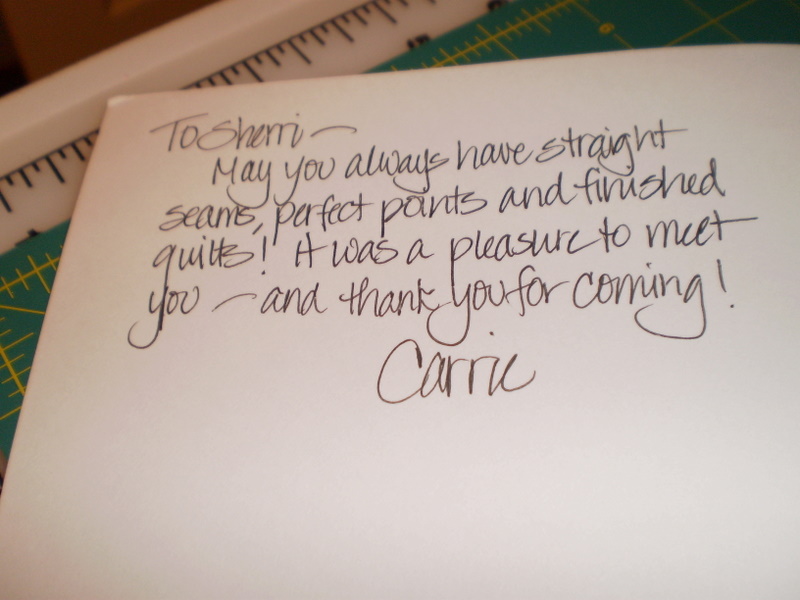 To Sherri —
May you always have straight
seams, perfect points and finished
quilts! It was a pleasure to meet
you — and thank you for coming!
Carrie